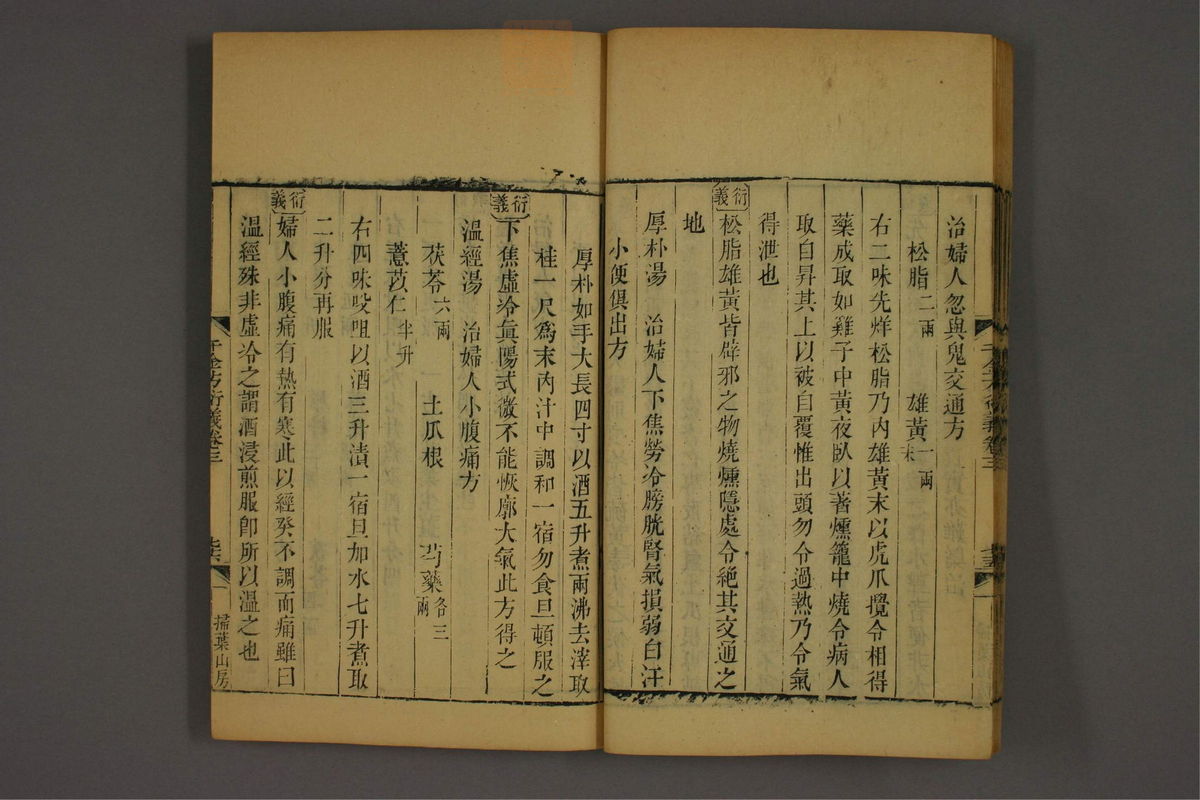 治婦人忽與鬼交通方
松脂二兩 雄黃一兩末
右二味先烊松脂乃內雄黃末以虎爪攪令相得
藥成取如雞子中黃夜臥以著燻籠中燒令病人
取自昇其上以被自覆惟出頭勿令過熱乃令氣
得泄也
衍義 松脂雄黃皆辟邪之物燒燻隱處令絕其交通之
地
厚朴湯 治婦人下焦勞冷膀胱腎氣損弱白汗
小便俱出方
厚朴如手大長四寸以酒五升煮兩沸去滓取
桂一尺為末內汁中調和一宿勿食旦頓服之
衍義 下焦虛冷眞陽式微不能恢廓大氣此方得之
溫經湯 治婦人小腹痛方
茯苓六兩 土瓜根 芍藥各三兩
薏苡仁半升
右四味㕮咀以酒三升漬一宿旦加水七升煮取
二升分再服
衍義 婦人小腹痛有熱有寒此以經癸不調而痛雖曰
溫經殊非虛冷之謂酒浸煎服卽所以溫之也
千金方衍義卷三
掃葉山房